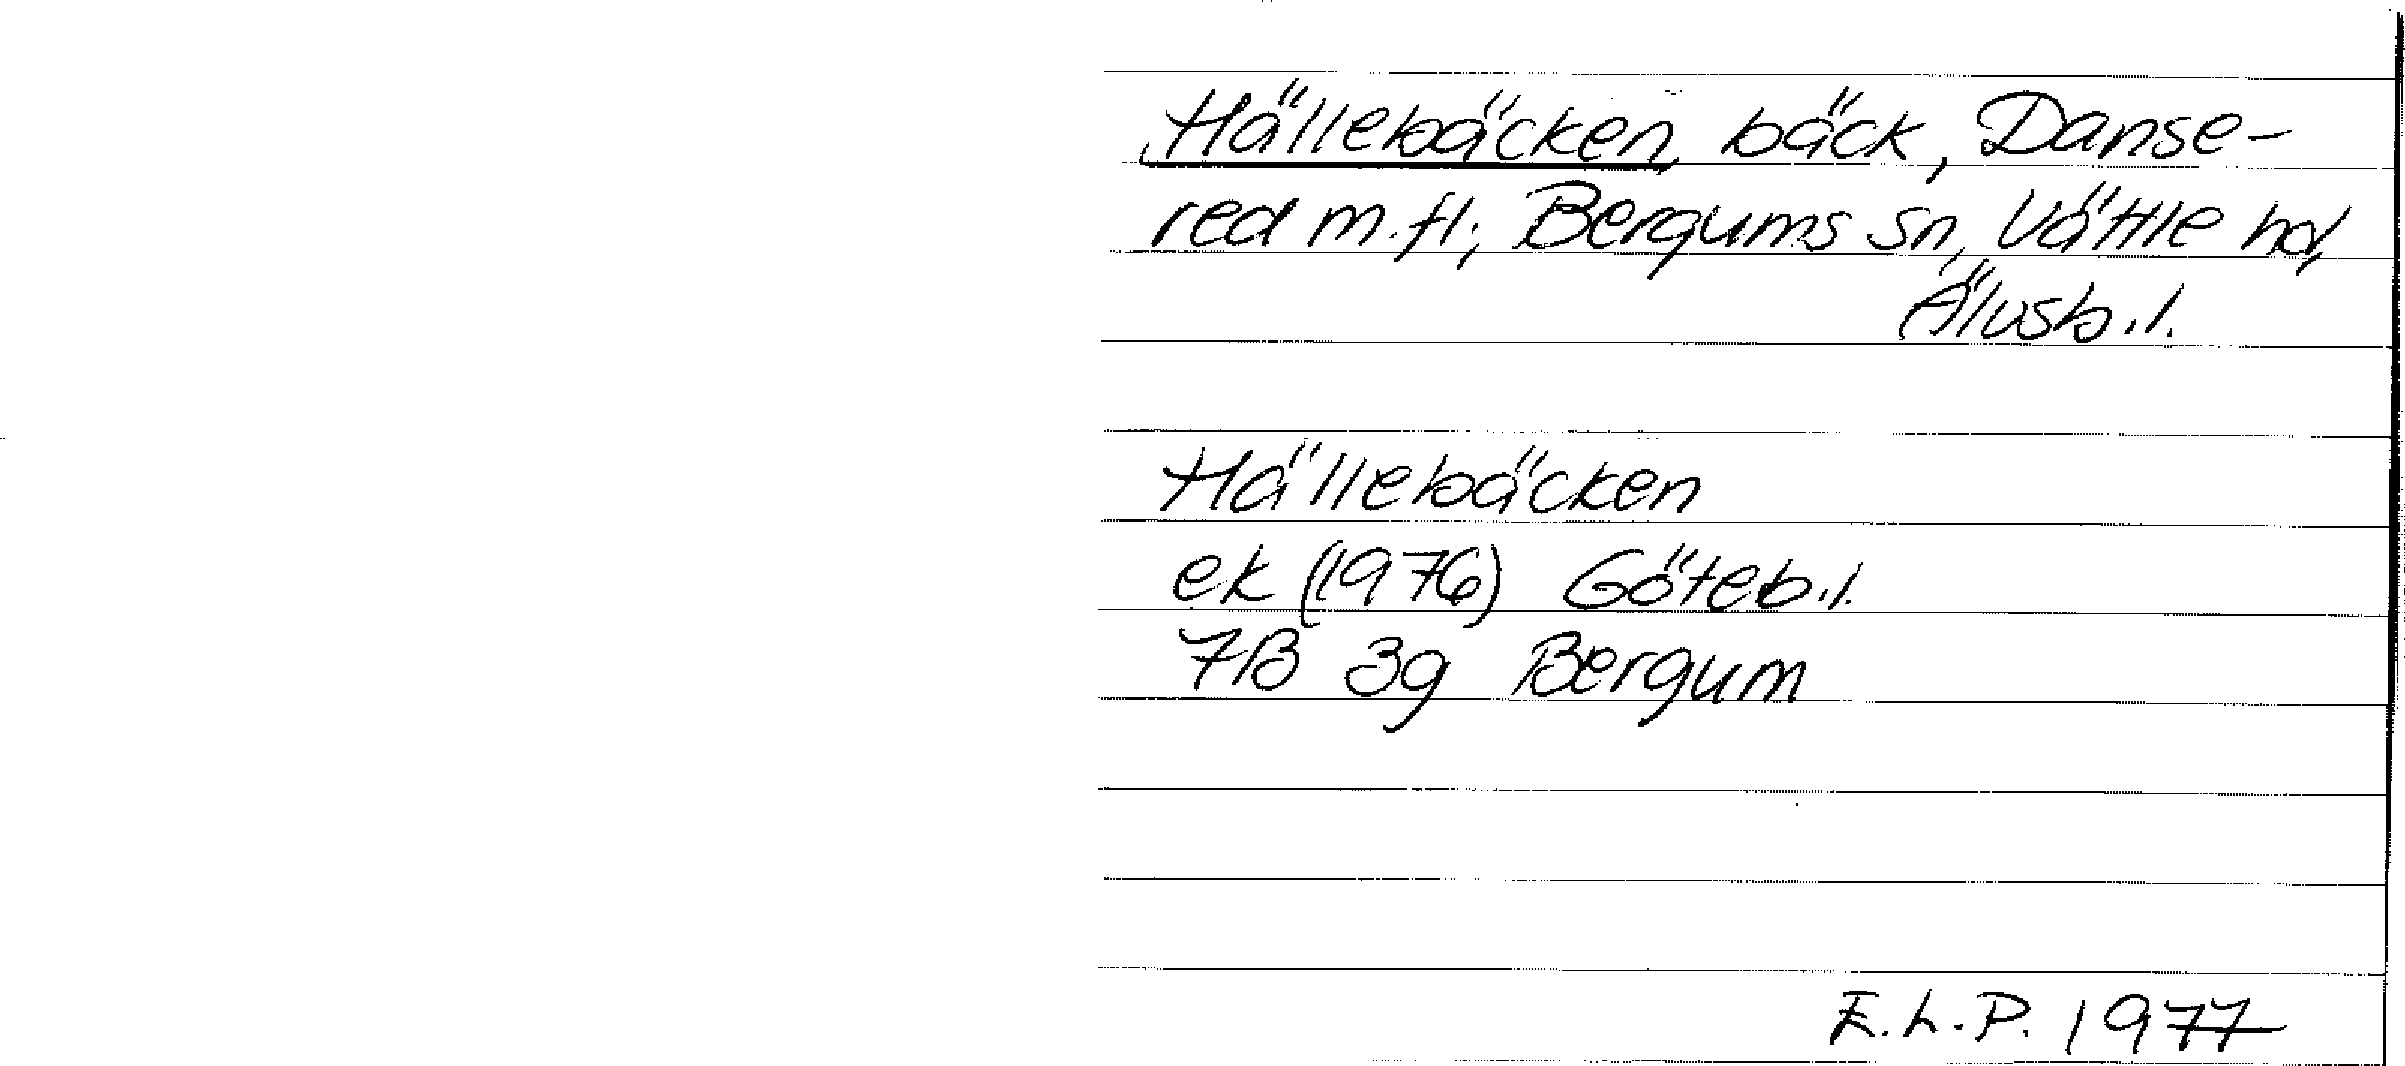 Hällebäcken, bäck, Danse-
red m.fl., Bergums sn, Vättle hd,
Älvsb.l.
Hällebäcken
ek (1976) Göteb.l.
7B 3g Bergum
E.L.P. 1977